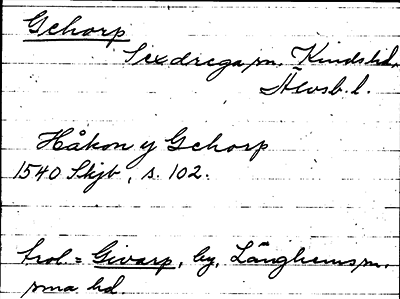 Gehorp
Sexdrega sn. Kinds hd.
Älvsb. l.
Håkon y Gehorp
1540 Skjb, s. 102.
trol = Givarp, by, Länghems sn.
sma hd.